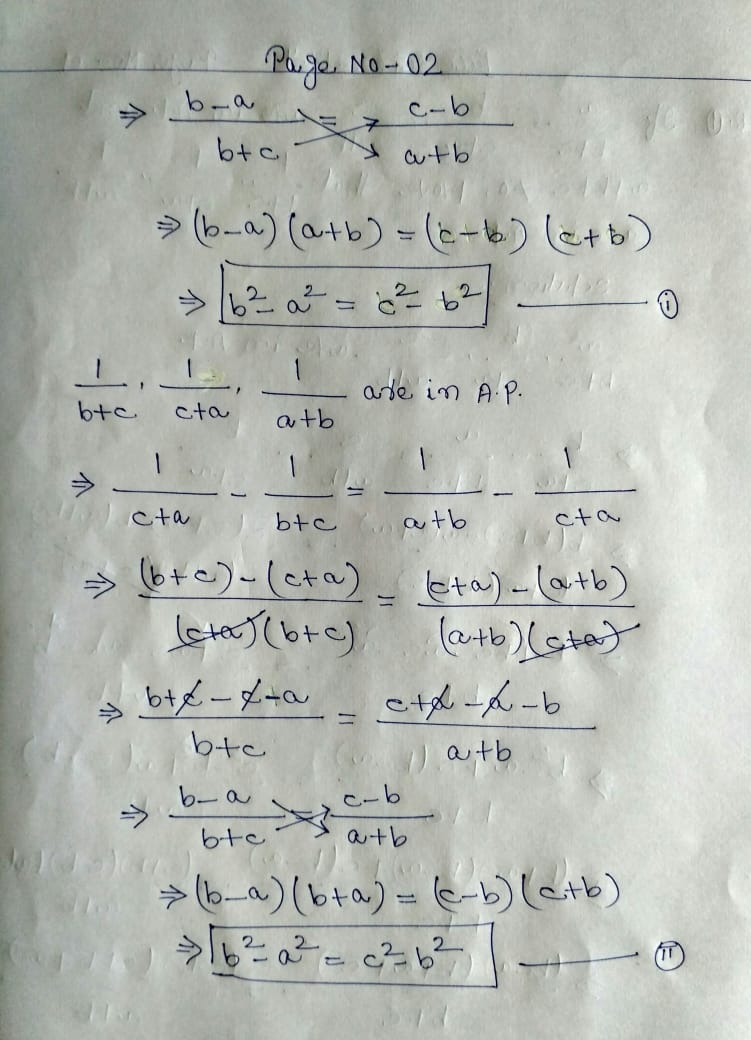 Page No-02
⇒ (b-a)/(b+c) = (c-b)/(a+b)
⇒ (b-a)(a+b) = (c-b)(c+b)
⇒ b²-a² = c²-b² ——— (i)
1/(b+c), 1/(c+a), 1/(a+b) are in A.P.
⇒ 1/(c+a) - 1/(b+c) = 1/(a+b) - 1/(c+a)
⇒ ((b+c)-(c+a))/((c+a)(b+c)) = ((c+a)-(a+b))/((a+b)(c+a))
⇒ (b+c-c-a)/(b+c) = (c+a-a-b)/(a+b)
⇒ (b-a)/(b+c) = (c-b)/(a+b)
⇒ (b-a)(b+a) = (c-b)(c+b)
⇒ b²-a² = c²-b² ——— (ii)